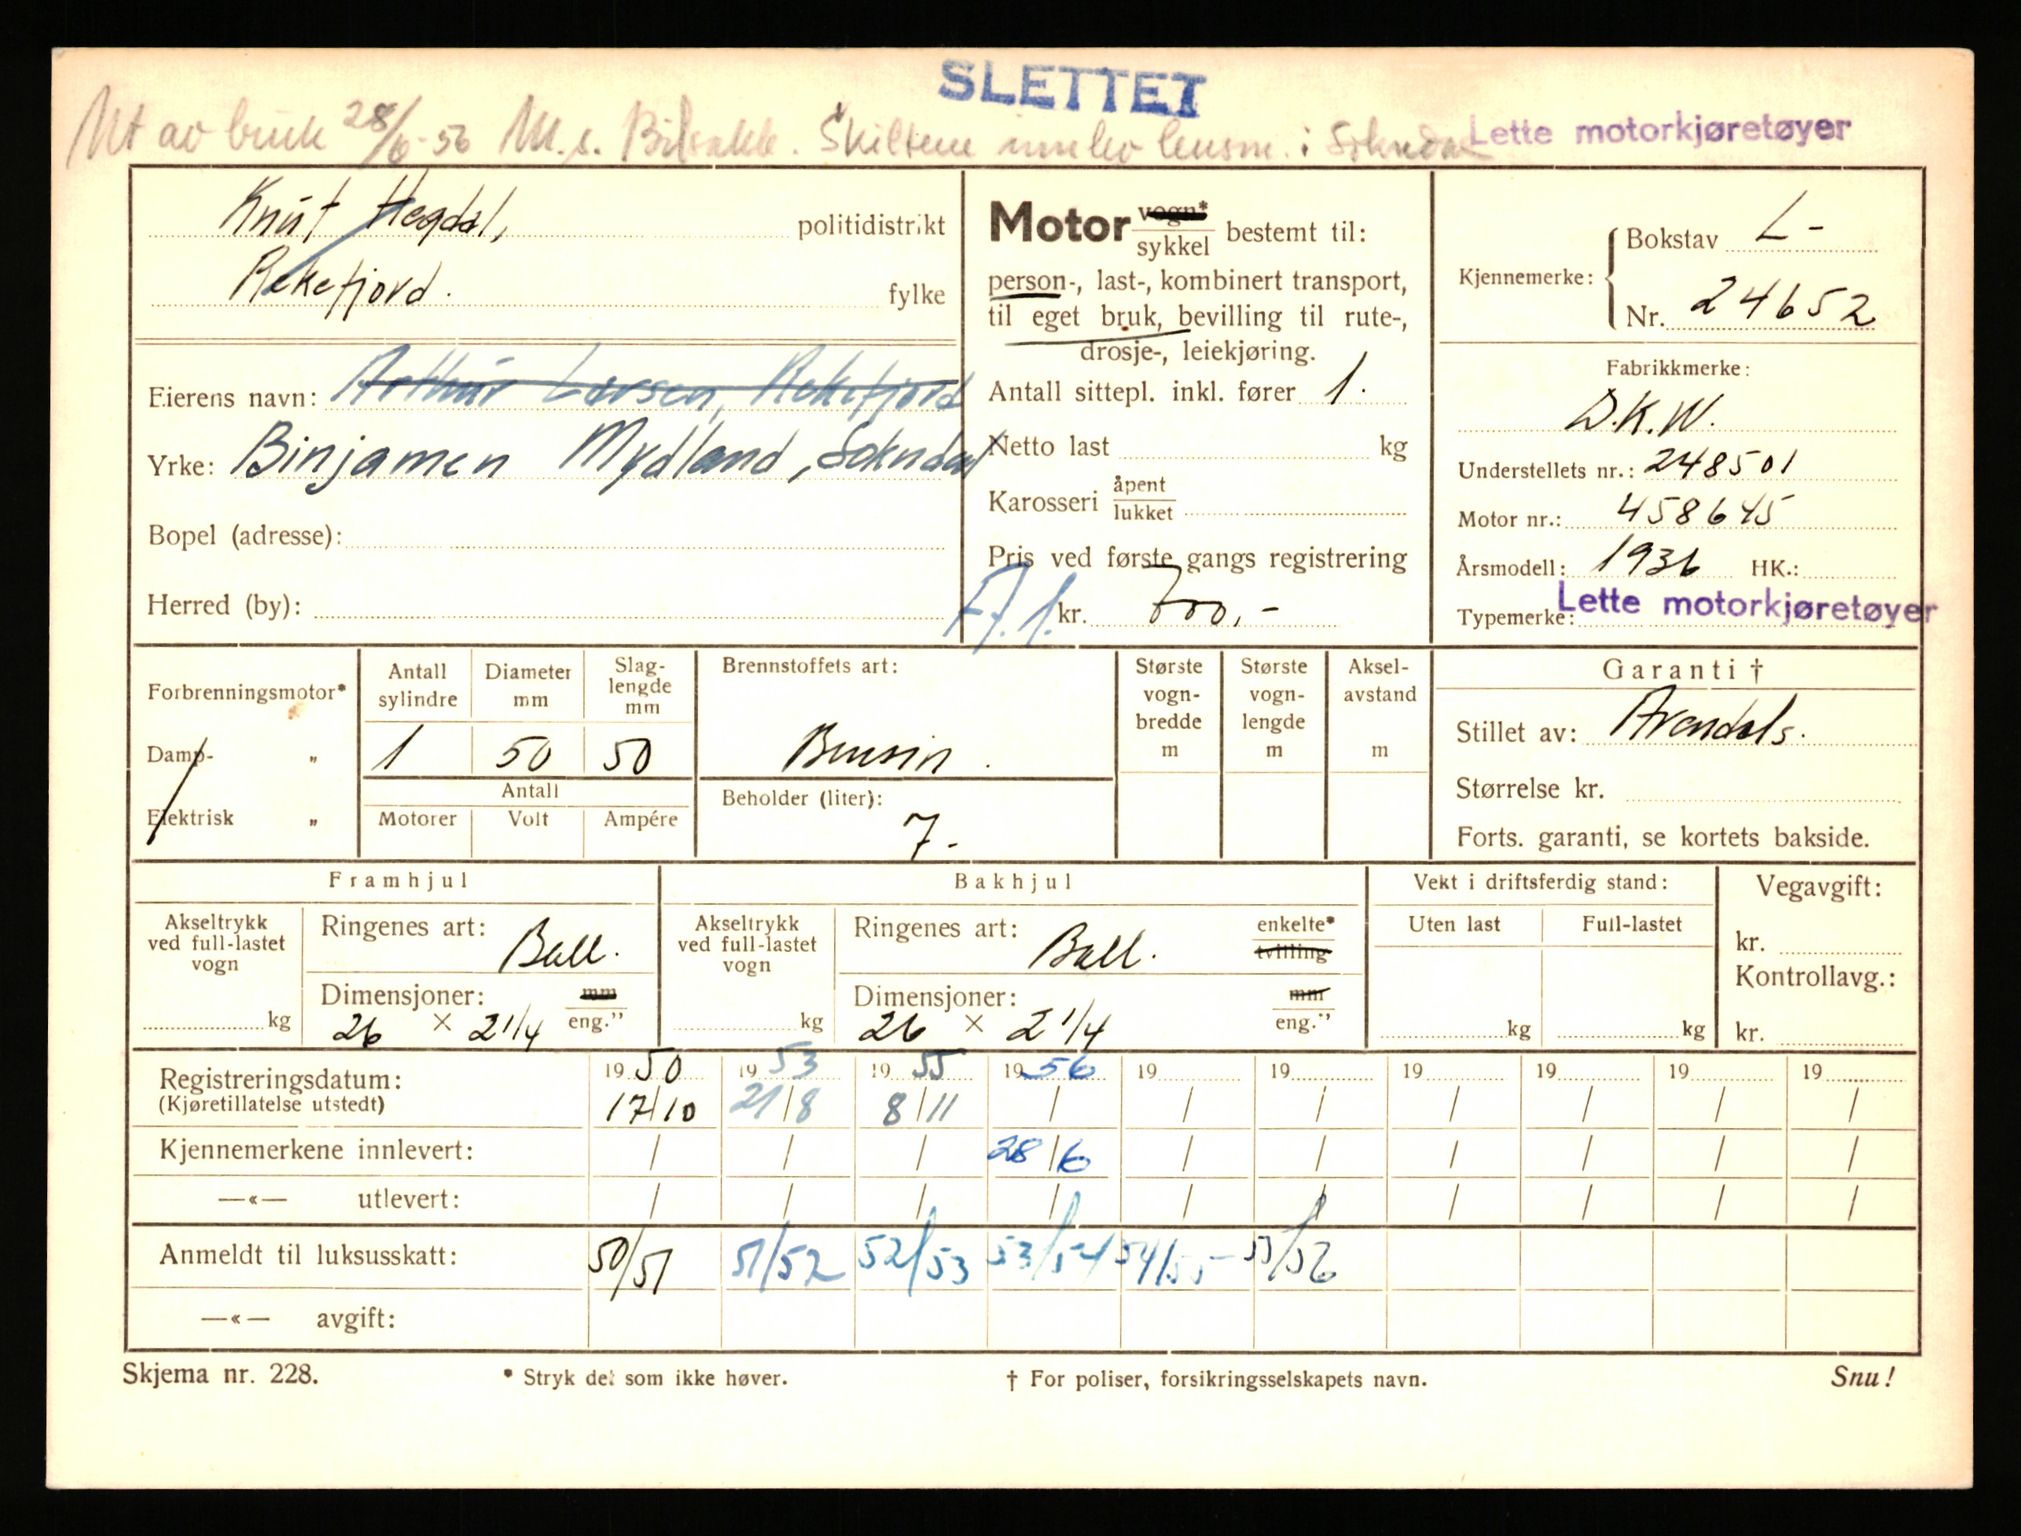 SLETTET
Ut av bruk 28/6-56 M.s. Bilsakk. Skiltene innlev lensm. i Sokndal
Lette motorkjøretøyer
Knut Hegdal, politidistrikt
Rekefjord. fylke
Eierens navn: Arthur Larsen, Rekefjord
Yrke: Binjamen Mydland, Sokndal
Bopel (adresse):
Herred (by):
Motor vogn* / sykkel bestemt til:
person-, last-, kombinert transport,
til eget bruk, bevilling til rute-,
drosje-, leiekjøring.
Antall sittepl. inkl. fører 1.
Netto last kg
Karosseri åpent / lukket
Pris ved første gangs registrering
kr. 700,-
Kjennemerke: Bokstav L-
Nr. 24652
Fabrikkmerke:
D.K.W.
Understellets nr.: 248501
Motor nr.: 458645
Årsmodell: 1936 HK.:
Typemerke: Lette motorkjøretøyer
Forbrenningsmotor*
Damp- „
Elektrisk „
Antall sylindre Diameter mm Slag-lengde mm
1 50 50
Antall
Motorer Volt Ampére
Brennstoffets art:
Bensin.
Beholder (liter):
7.-
Største vogn-bredde m Største vogn-lengde m Aksel-avstand m
Garanti †
Stillet av: Arendals.
Størrelse kr.
Forts. garanti, se kortets bakside.
Framhjul
Akseltrykk ved full-lastet vogn kg
Ringenes art: Ball.
Dimensjoner: mm / eng."
26 × 2 1/4
Bakhjul
Akseltrykk ved full-lastet vogn kg
Ringenes art: Ball. enkelte* / tvilling
Dimensjoner: mm / eng."
26 × 2 1/4
Vekt i driftsferdig stand:
Uten last Full-lastet
kg kg
Vegavgift:
kr.
Kontrollavg.:
kr.
Registreringsdatum: 19 50 19 53 19 55 19 56 19 19 19 19 19 19
(Kjøretillatelse utstedt) 17/10 21/8 8/11 / / / / / / /
Kjennemerkene innlevert: / / / 28/6 / / / / / /
—«— utlevert: / / / / / / / / / /
Anmeldt til luksusskatt: 50/51 51/52 52/53 53/54 54/55 55/56
—«— avgift:
Skjema nr. 228. * Stryk det som ikke høver. † For poliser, forsikringsselskapets navn. Snu!